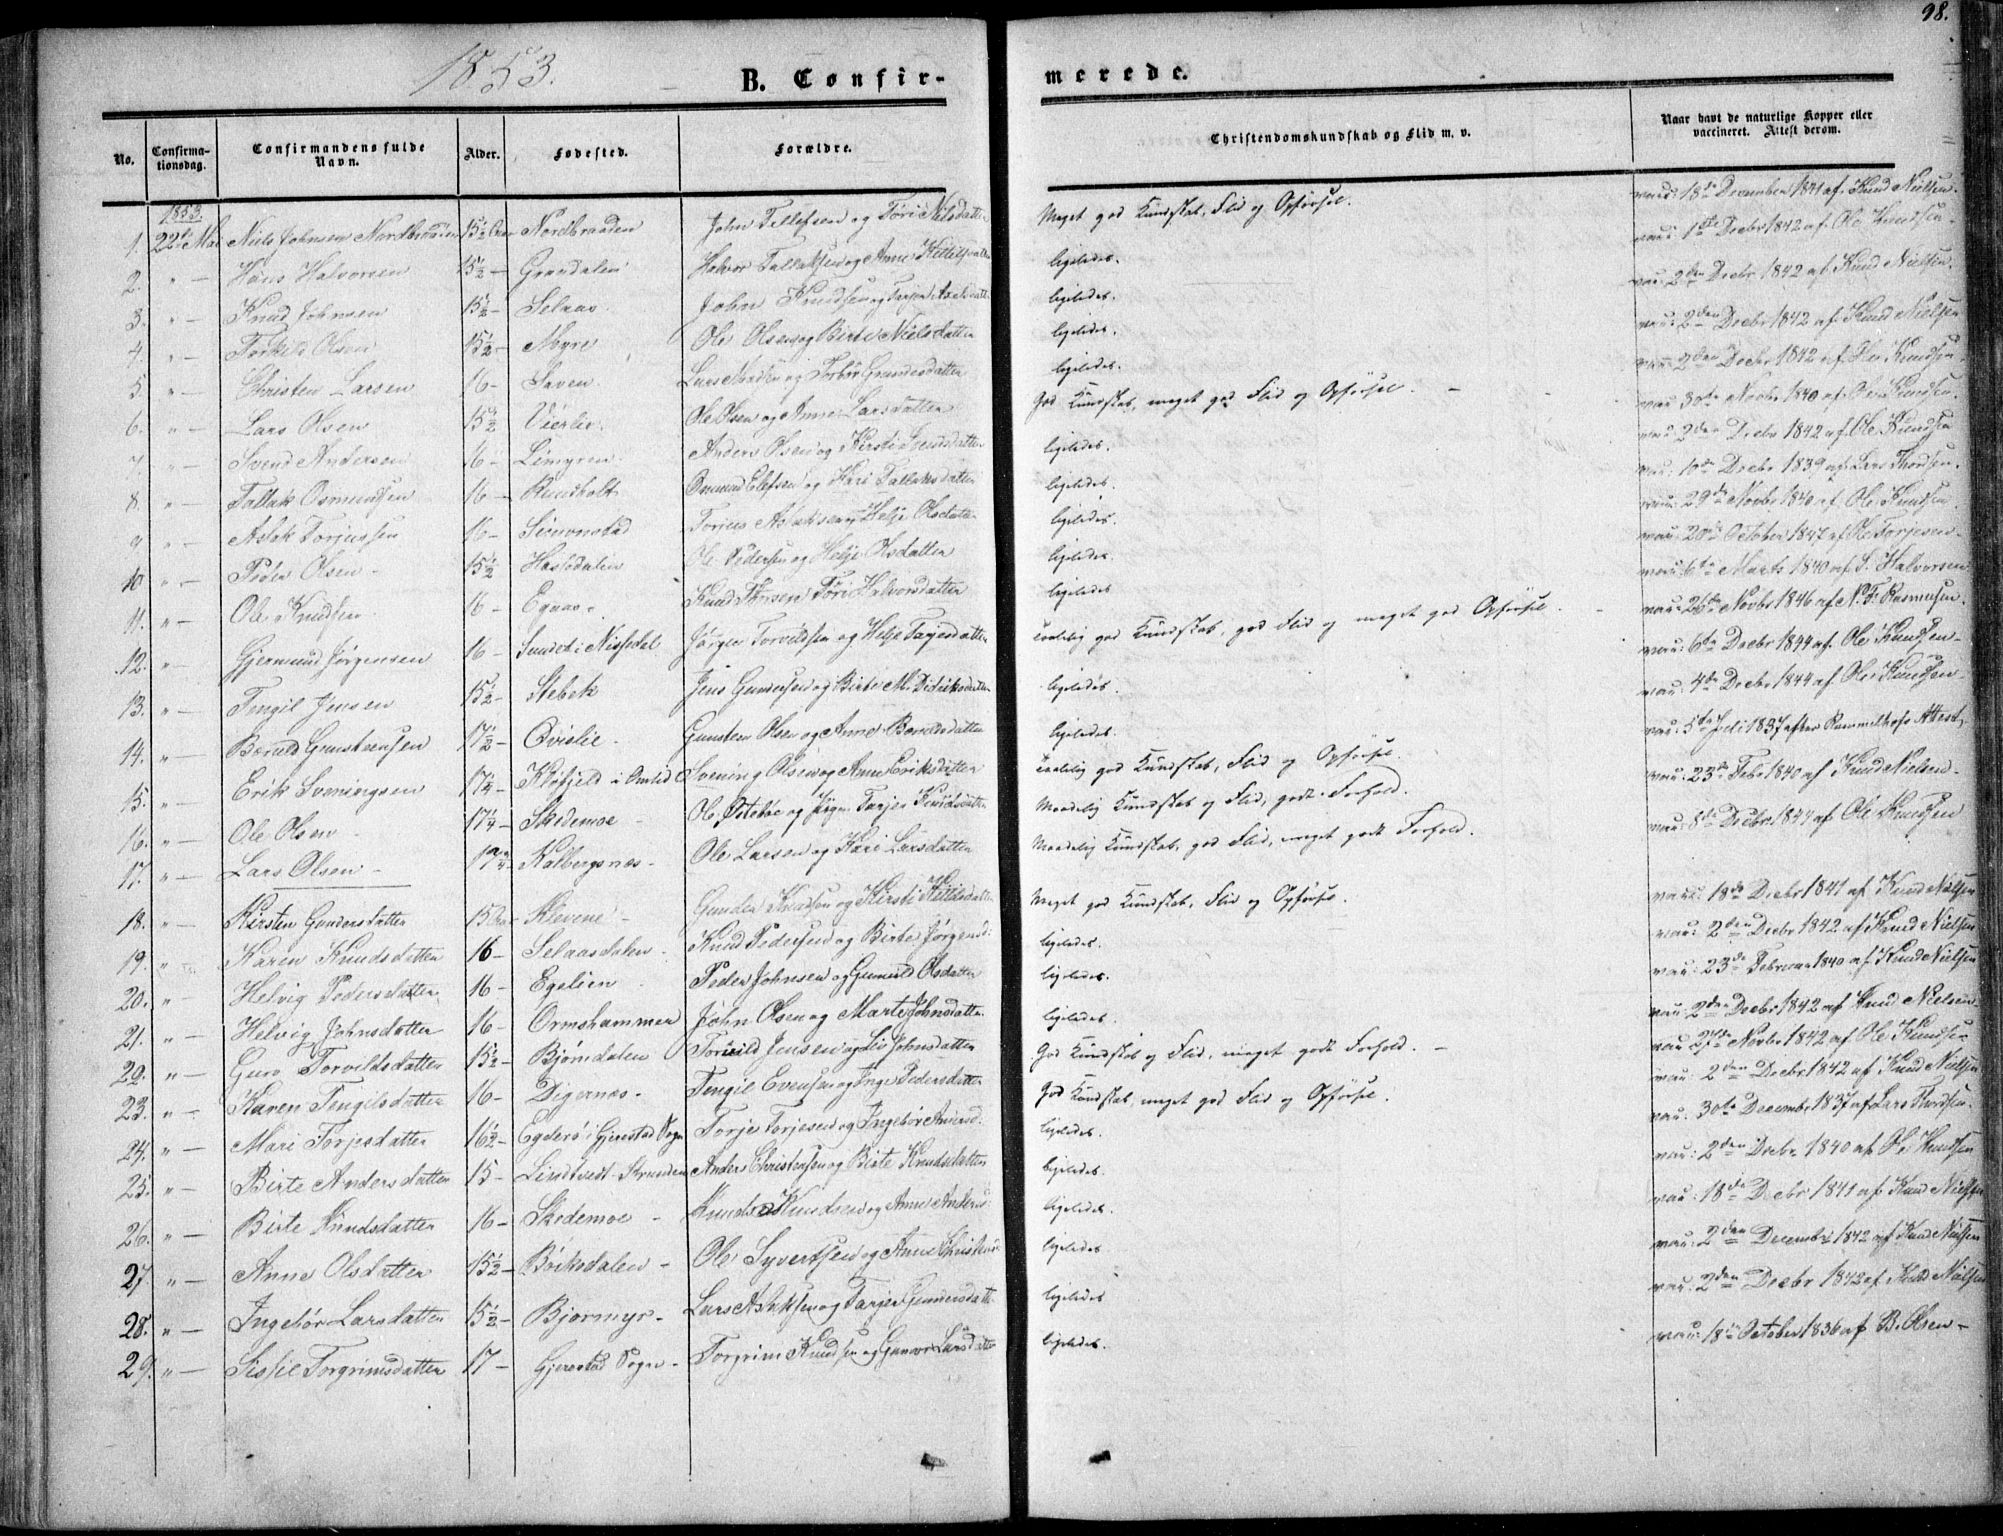 98.
1853.
B. Confirmerede.
No. Confirmationsdag. Confirmandens fulde Navn. Alder. Fødested. Forældre. Christendomskundskab og Flid m. v. Naar havt de naturlige Kopper eller vaccineret. Attest derom.
1853.
1. 22de Mai Niels Johnsen Nordbraaden 15½ Nordbraaden John Tellefsen og Töri Nielsdatter Meget god Kundskab, Flid og Opförsel. vacc: 18de December 1841 af Knud Nielsen.
2. " — Hans Halvorsen 15½ — Grandalen Halvor Tallaksen og Anne ligeledes. vacc: 1ste Decbr 1842 af Ole Knudsen
3. " — Knud Johnsen 15½ — Selaas John Knudsen og ligeledes. vac: 2den Decbr 1842 af Knud Nielsen.
4. " — Olsen 15½ — Myre Ole Olsen og Birte Nielsdatter ligeledes. vac: 2den Decbr 1842 af Knud Nielsen
5. " — Christen Larsen 16 — Saven Lars og Gundersdatter ligeledes. vac: 2den Decbr 1842 af Ole Knudsen
6. " — Lars Olsen 15½ Vierlie Ole Olsen og Anne Larsdatter God Kundskab, meget god Flid og Opförsel. — vac: 30te Novbr 1840 af Ole Knudsen.
7. " — Svend Andersen 16 — Limyren Anders Olsen og Kirsti Svendsdatter ligeledes. vac: 2den Decbr 1842 af Ole Knudsen
8. " — Tallak Osmundsen 16 — Rundholt Osmund Olefsen og Kari Tallaksdatter ligeledes. vac: Decbr 1839 af Lars Thordsen.
9. " — Aslak Torjussen 16 — Simonstad Torjus Aslaksen og Helje Olsdatter ligeledes. vac: 29de Novbr 1840 af Ole Knudsen.
10. " — Peder Olsen — 15½ Hasledalen Ole Pedersen og Helje Olsdatter ligeledes vac: 20de October 1847 af Ole Torjesen
11. " — Ole Knudsen 16 — Egaas — Knud Töri Halvorsdatter ligeledes vac: 6te Marts 1840 af S. Halvorsen
12. " — Gjermund Jörgensen 16 — Sundet i Nissedal Jörgen Torvildsen og Helje Tarjesdatter temmelig god Kundskab, god Flid og meget god Opförsel. vac: 26de Novbr 1846 af N. F. Rasmusen.
13. " — Tengil Jensen 15½ — Stebek Jens Gundersen og Birte M. Didriksdatter ligeledes. vac: 6te Decbr 1844 af Ole Knudsen
14. " — Beruld Gunstensen 17½ — Ovislie — Gunsten Olsen og Anne Beruldsdatter ligeledes. vac: 4de Decbr 1844 af Ole Knudsen
15. " — Erik Sveningsen 17¼ — i Omlid Svening Olsen og Anne Eriksdatter god Kundskab, Flid og Opförsel. vac: 5te Juli 1837 efter Attest
16. " — Ole Olsen 17¼ — Skedemoe — O. Östeböe og Tarjer Knudsdatter Maadelig Kundskab og Flid, godt Forhold. vac: 23de Febr 1840 af Knud Nielsen
17. " — Lars Olsen — 17¾ — Kalbergsnes — Ole Larsen og Kari Larsdatter Maadelig Kundskab, god Flid, meget godt Forhold. vac: 8de Decbr 1844 af Ole Knudsen
18. " — Kirsten Gundersdatter 15 Klevene — Gunder Knudsen og Kirsti Kittelsdatter Meget god Kundskab, Flid og Opförsel. vac: 18de Decbr 1841 af Knud Nielsen
19. " — Karen Knudsdatter 16 — Selaasdalen Knud Pedersen og Birte Jörgensd: ligeledes. vac: 2den Decbr 1842 af Knud Nielsen
20. " — Helvig Pedersdatter 16 — Egelien Peder Johnsen og Gunild Olsdatter ligeledes. vac: 23de Februar 1840 af Knud Nielsen
21. " — Helvig Johnsdatter 16 — Ormshammer John Olsen og Marte Johnsdatter ligeledes. vac: 2den Decbr 1842 af Knud Nielsen
22. " — Guro Torvildsdatter 15½ — Bjorndalen Torvild Jensen og Liv Johnsdatter God Kundskab og Flid, meget godt Forhold. — vac: 27de Novbr 1842 af Ole Knudsen
23. " — Karen Tengilsdatter 16 — Digernæs — Tengil Evensen og Inge Pedersdatter God Kundskab, meget god Flid og Opförsel. vac: 2den Decbr 1842 af Knud Nielsen
24. " — Mari Torjesdatter 16½ — Egderö i Gjerestad Sogn Torje Torjesen og Ingebör ligeledes. vac: 30te Decembr 1837 af Lars Thordsen.
25. " — Birte Andersdatter 15 — Lindtveit Anders Christensen og Birte Knudsdatter ligeledes. vac: 2den Decbr 1840 af O. Knudsen
26. " — Birte Knudsdatter 16 — Skedemoe — Knud Knudsen og Anne Andersd: ligeledes. vac: 18de Decbr 1841 af Knud Nielsen
27. " — Anne Olsdatter 15½ — Böiksdalen — Ole Syvertsen og Anne Christensd: ligeledes vac: 2den December 1842 af Knud Nielsen
28. " — Ingebör Larsdatter 15½ — Bjormyr — Lars Aslaksen og Tarjer Gundersdatter ligeledes vac: 2den Decbr 1842 af Knud Nielsen
29. " — Sislie Torgrimsdatter 17 — Gjerestad Sogn — Torgrim Knudsen og Gunvor Larsdatter ligeledes. vac: 18de October 1836 af B. Olsen —